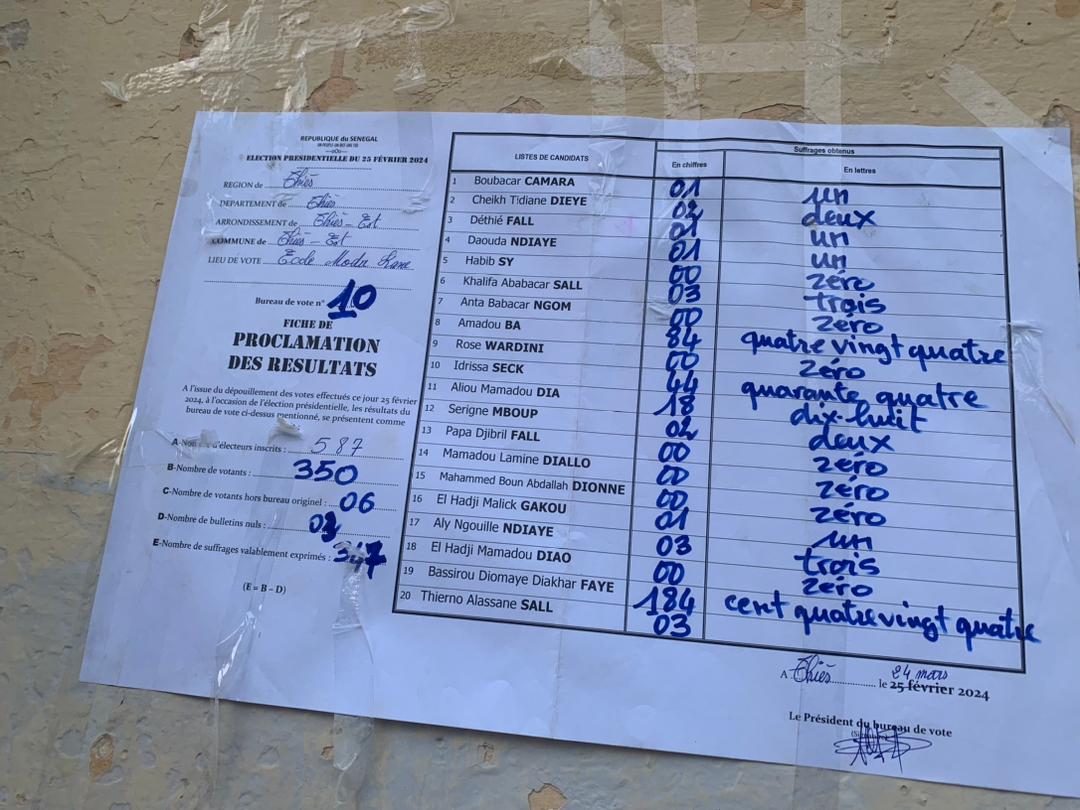 REPUBLIQUE du SENEGAL
UN PEUPLE-UN BUT-UNE FOI
---oOo---
ELECTION PRESIDENTIELLE DU 25 FÉVRIER 2024
REGION de Thiès
DEPARTEMENT de Thiès
ARRONDISSEMENT de Thiès-Est
COMMUNE de Thiès-Est
LIEU DE VOTE École Modu Kane
Bureau de vote n° 10
FICHE DE
PROCLAMATION
DES RESULTATS
A l'issue du dépouillement des votes effectués ce jour 25 février
2024, à l'occasion de l'élection présidentielle, les résultats du
bureau de vote ci-dessus mentionné, se présentent comme
:
A-Nom d'électeurs inscrits : 587
B-Nombre de votants : 350
C-Nombre de votants hors bureau originel : 06
D-Nombre de bulletins nuls : 03
E-Nombre de suffrages valablement exprimés : 347
(E = B – D)
LISTES DE CANDIDATS Suffrages obtenus
En chiffres En lettres
1 Boubacar CAMARA 01 un
2 Cheikh Tidiane DIEYE 02 deux
3 Déthié FALL 01 un
4 Daouda NDIAYE 01 un
5 Habib SY 00 zéro
6 Khalifa Ababacar SALL 03 trois
7 Anta Babacar NGOM 00 zéro
8 Amadou BA 84 quatre vingt quatre
9 Rose WARDINI 00 zéro
10 Idrissa SECK 44 quarante quatre
11 Aliou Mamadou DIA 18 dix-huit
12 Serigne MBOUP 02 deux
13 Papa Djibril FALL 00 zéro
14 Mamadou Lamine DIALLO 00 zéro
15 Mahammed Boun Abdallah DIONNE 00 zéro
16 El Hadji Malick GAKOU 01 un
17 Aly Ngouille NDIAYE 03 trois
18 El Hadji Mamadou DIAO 00 zéro
19 Bassirou Diomaye Diakhar FAYE 184 cent quatre vingt quatre
20 Thierno Alassane SALL 03
24 mars
A Thiès le 25 février 2024
Le Président du bureau de vote